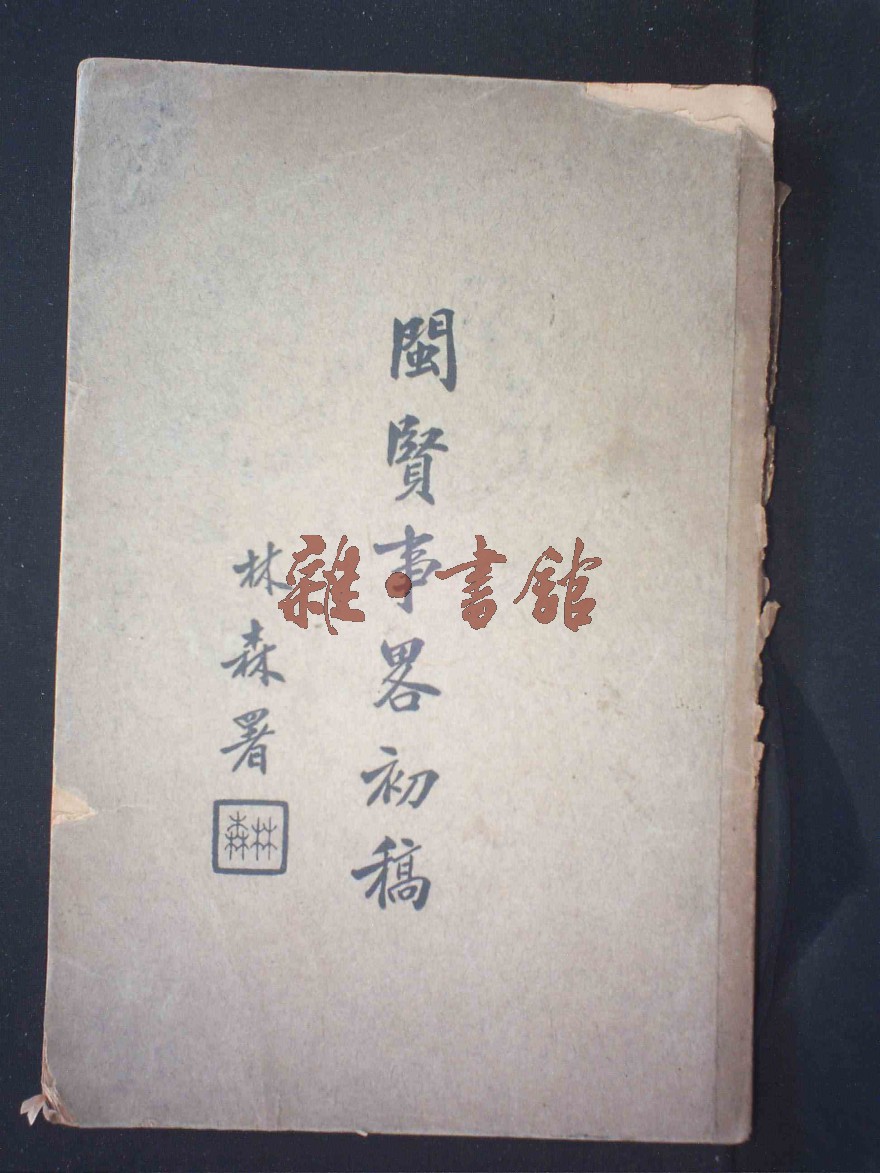 閩賢事畧初稿
林森署
林森
雜·書館